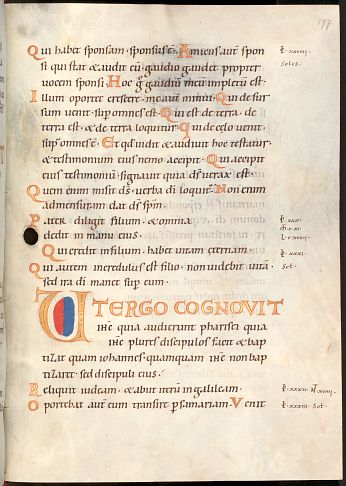 197
Qui habet sponsam · sponsus ē · Amicus aut̄ spon
si qui stat & audit eū · gaudio gaudet propter
vocem sponsi · Hoc g̊ gaudiū meū impletū est ·
Illum oportet crescere · me aut̄ minui · Qui de sur
sum venit · sup omnes est · Qui est de terra · de
terra est · & de terra loquitur · Qui de cęlo venit ·
sup omnes ē · Et qd̄ uidit & audiuit hoc testatur ·
& testimonium eius nemo accipit · Qui accepit
eius testimoniū · signauit quia dś uerax est ·
Quem enim misit dś · uerba dī loquit̄ · Non enim
ad mensuram dat dś sp̄m ·
Pater diligit filium · & omnia
dedit in manu eius ·
Qui credit in filium · habet uitam ęternam ·
Qui autem incredulus est filio · non uidebit uitā ·
sed ira dī manet sup eum ·
UT ERGO COGNOVIT
ih̄c quia audierunt pharisei quia
ih̄c plures discipulos facit & bap
tizat quam iohannes · quamquam ih̄c non bap
tizaret · sed discipuli eius ·
Reliquit iudeam · & abiit iterū in galileam ·
Oportebat aut̄ eum transire p̱ samariam · Venit